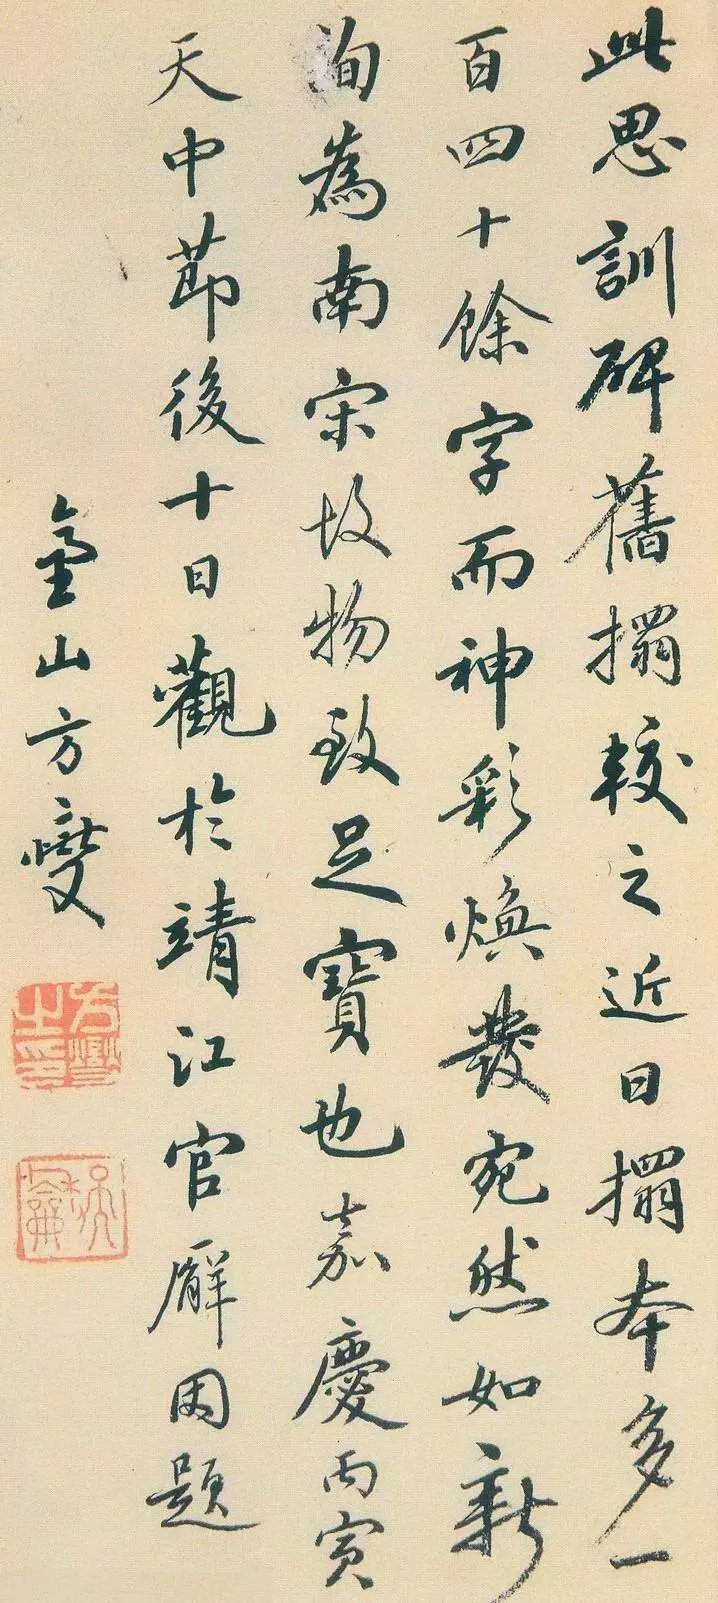 此思訓碑舊搨較之近日搨本多一
百四十餘字而神彩煥發宛然如新
洵為南宋故物致足寶也嘉慶丙寅
天中節後十日觀於靖江官廨因題
山方燮